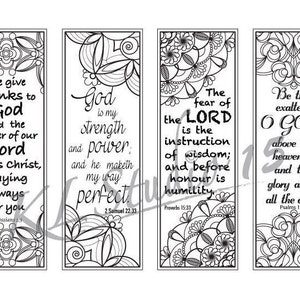 e give
nks to
God
d the
er of our
ord
s Christ,
ying
ways
r you,
God
is my
strength
and power:
and he maketh
my way
perfect.
2 Samuel 22:33
The
fear of
the LORD
is the
instruction
of wisdom;
and before
honour is
humility.
Proverbs 15:33
Be th
exalte
O GO
above
heaven
and th
glory a
all the e
Psalms